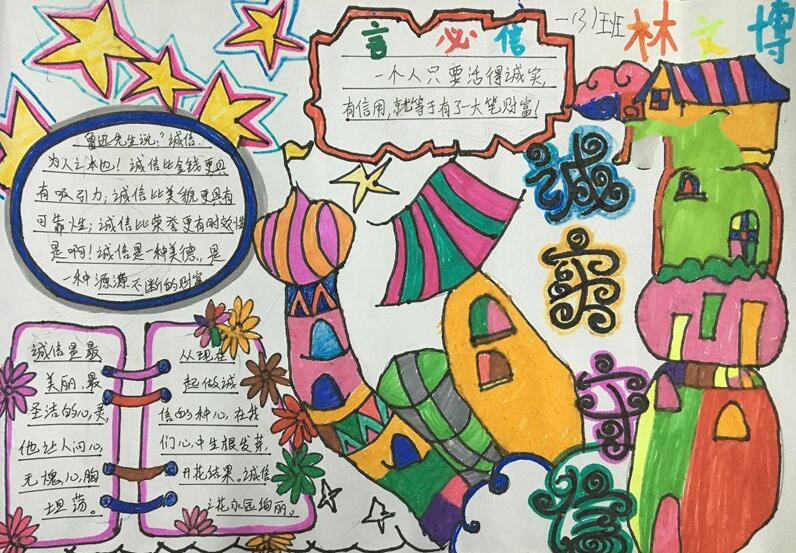 一(3)班 林文博
言必信
一个人只要活得诚实,
有信用,就等于有了一大笔财富!
鲁迅先生说:"诚信
为人之本也!诚信比金钱更具
有吸引力;诚信比美貌更具有
可靠性;诚信比荣誉更有时效性
是啊!诚信是一种美德,是
一种源源不断的财富
诚实守信
诚信是最
美丽,最
圣洁的心灵,
他让人问心
无愧,心胸
坦荡。
从现在
起做诚
信的种心,在我
们心中生根发芽,
开花结果。诚信
之花永远绚丽。